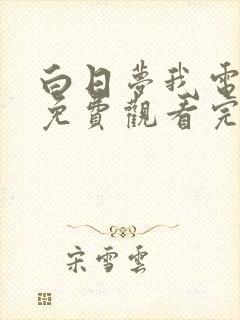 白日夢我電
免費觀看完
宋雪雲